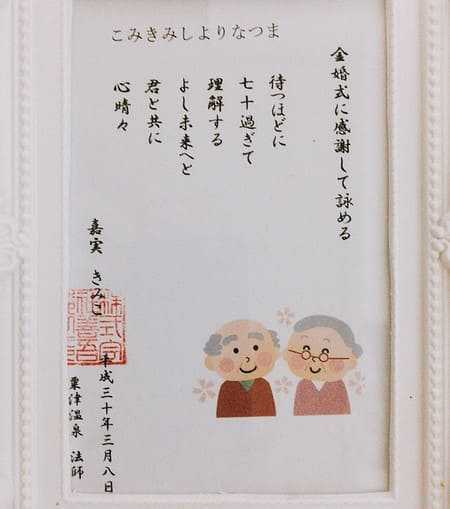 こみきみしよりなつま
金婚式に感謝して詠める
待つほどに
七十過ぎて
理解する
よし未来へと
君と共に
心晴々
嘉実 きみこ
平成三十年三月八日
粟津温泉 法師